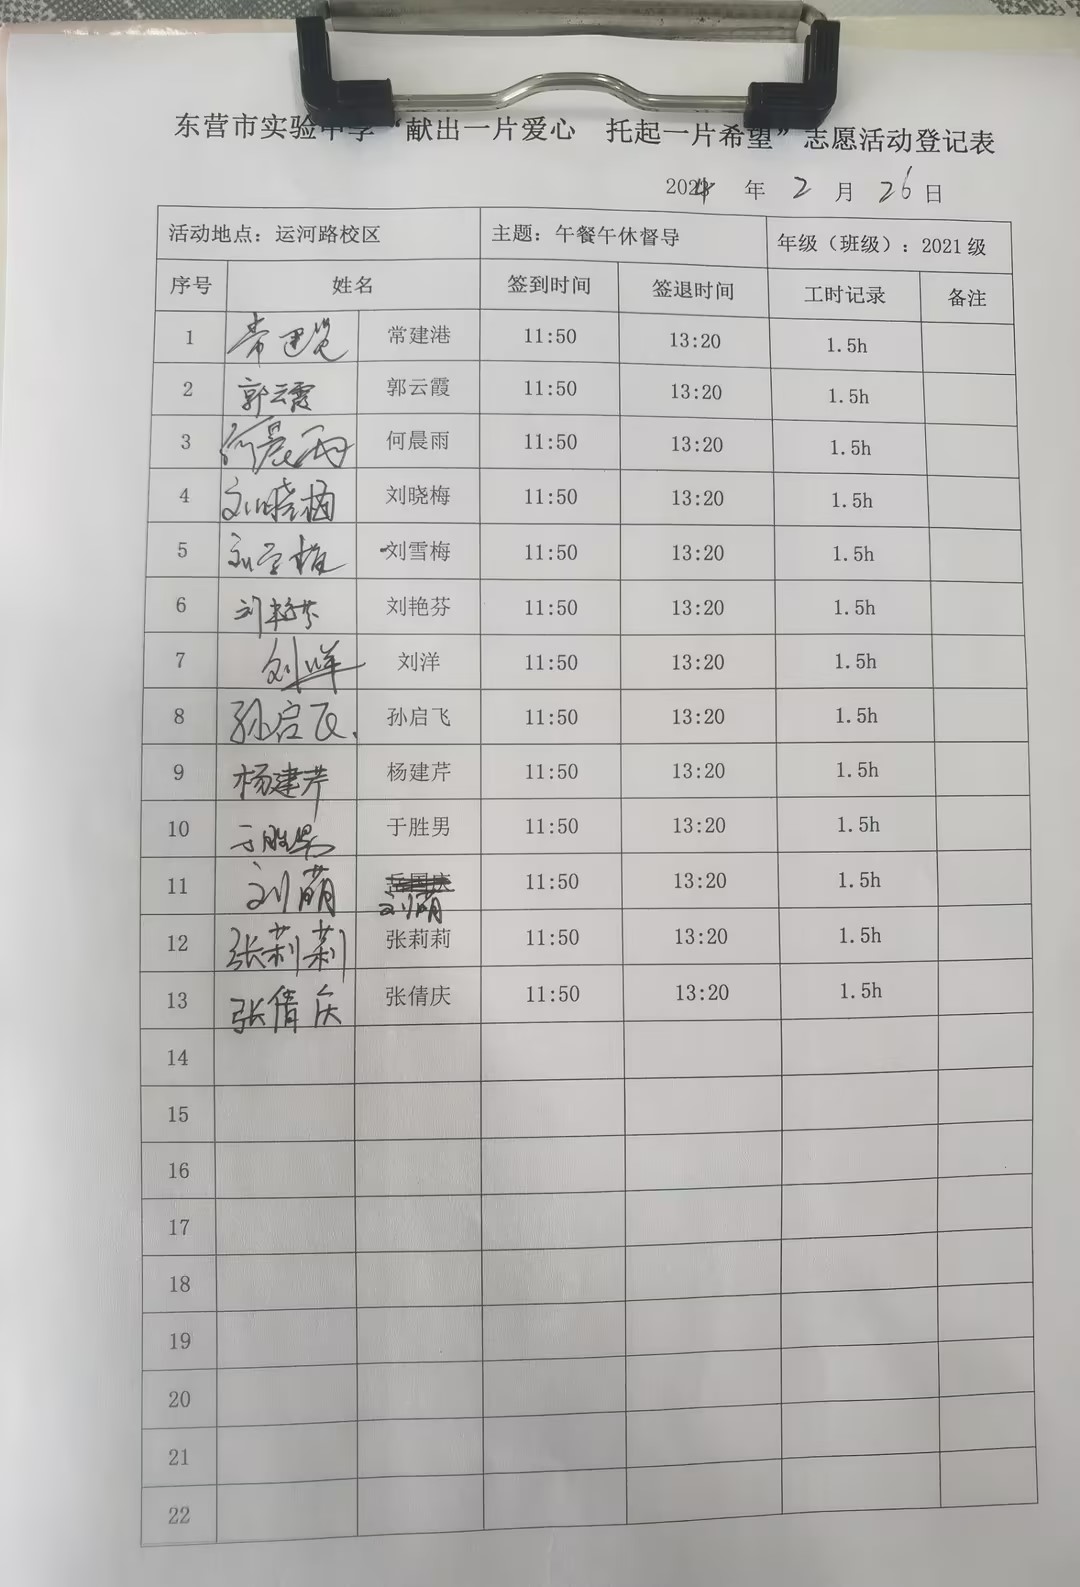 东营市实验中学“献出一片爱心 托起一片希望”志愿活动登记表
2024 年 2 月 26 日
活动地点：运河路校区 主题：午餐午休督导 年级（班级）：2021 级
序号 姓名 签到时间 签退时间 工时记录 备注
1 常建港 常建港 11:50 13:20 1.5h
2 郭云霞 郭云霞 11:50 13:20 1.5h
3 何晨雨 何晨雨 11:50 13:20 1.5h
4 刘晓梅 刘晓梅 11:50 13:20 1.5h
5 刘雪梅 刘雪梅 11:50 13:20 1.5h
6 刘艳芬 刘艳芬 11:50 13:20 1.5h
7 刘洋 刘洋 11:50 13:20 1.5h
8 孙启飞 孙启飞 11:50 13:20 1.5h
9 杨建芹 杨建芹 11:50 13:20 1.5h
10 于胜男 于胜男 11:50 13:20 1.5h
11 刘萌 刘萌 11:50 13:20 1.5h
12 张莉莉 张莉莉 11:50 13:20 1.5h
13 张倩庆 张倩庆 11:50 13:20 1.5h
14
15
16
17
18
19
20
21
22